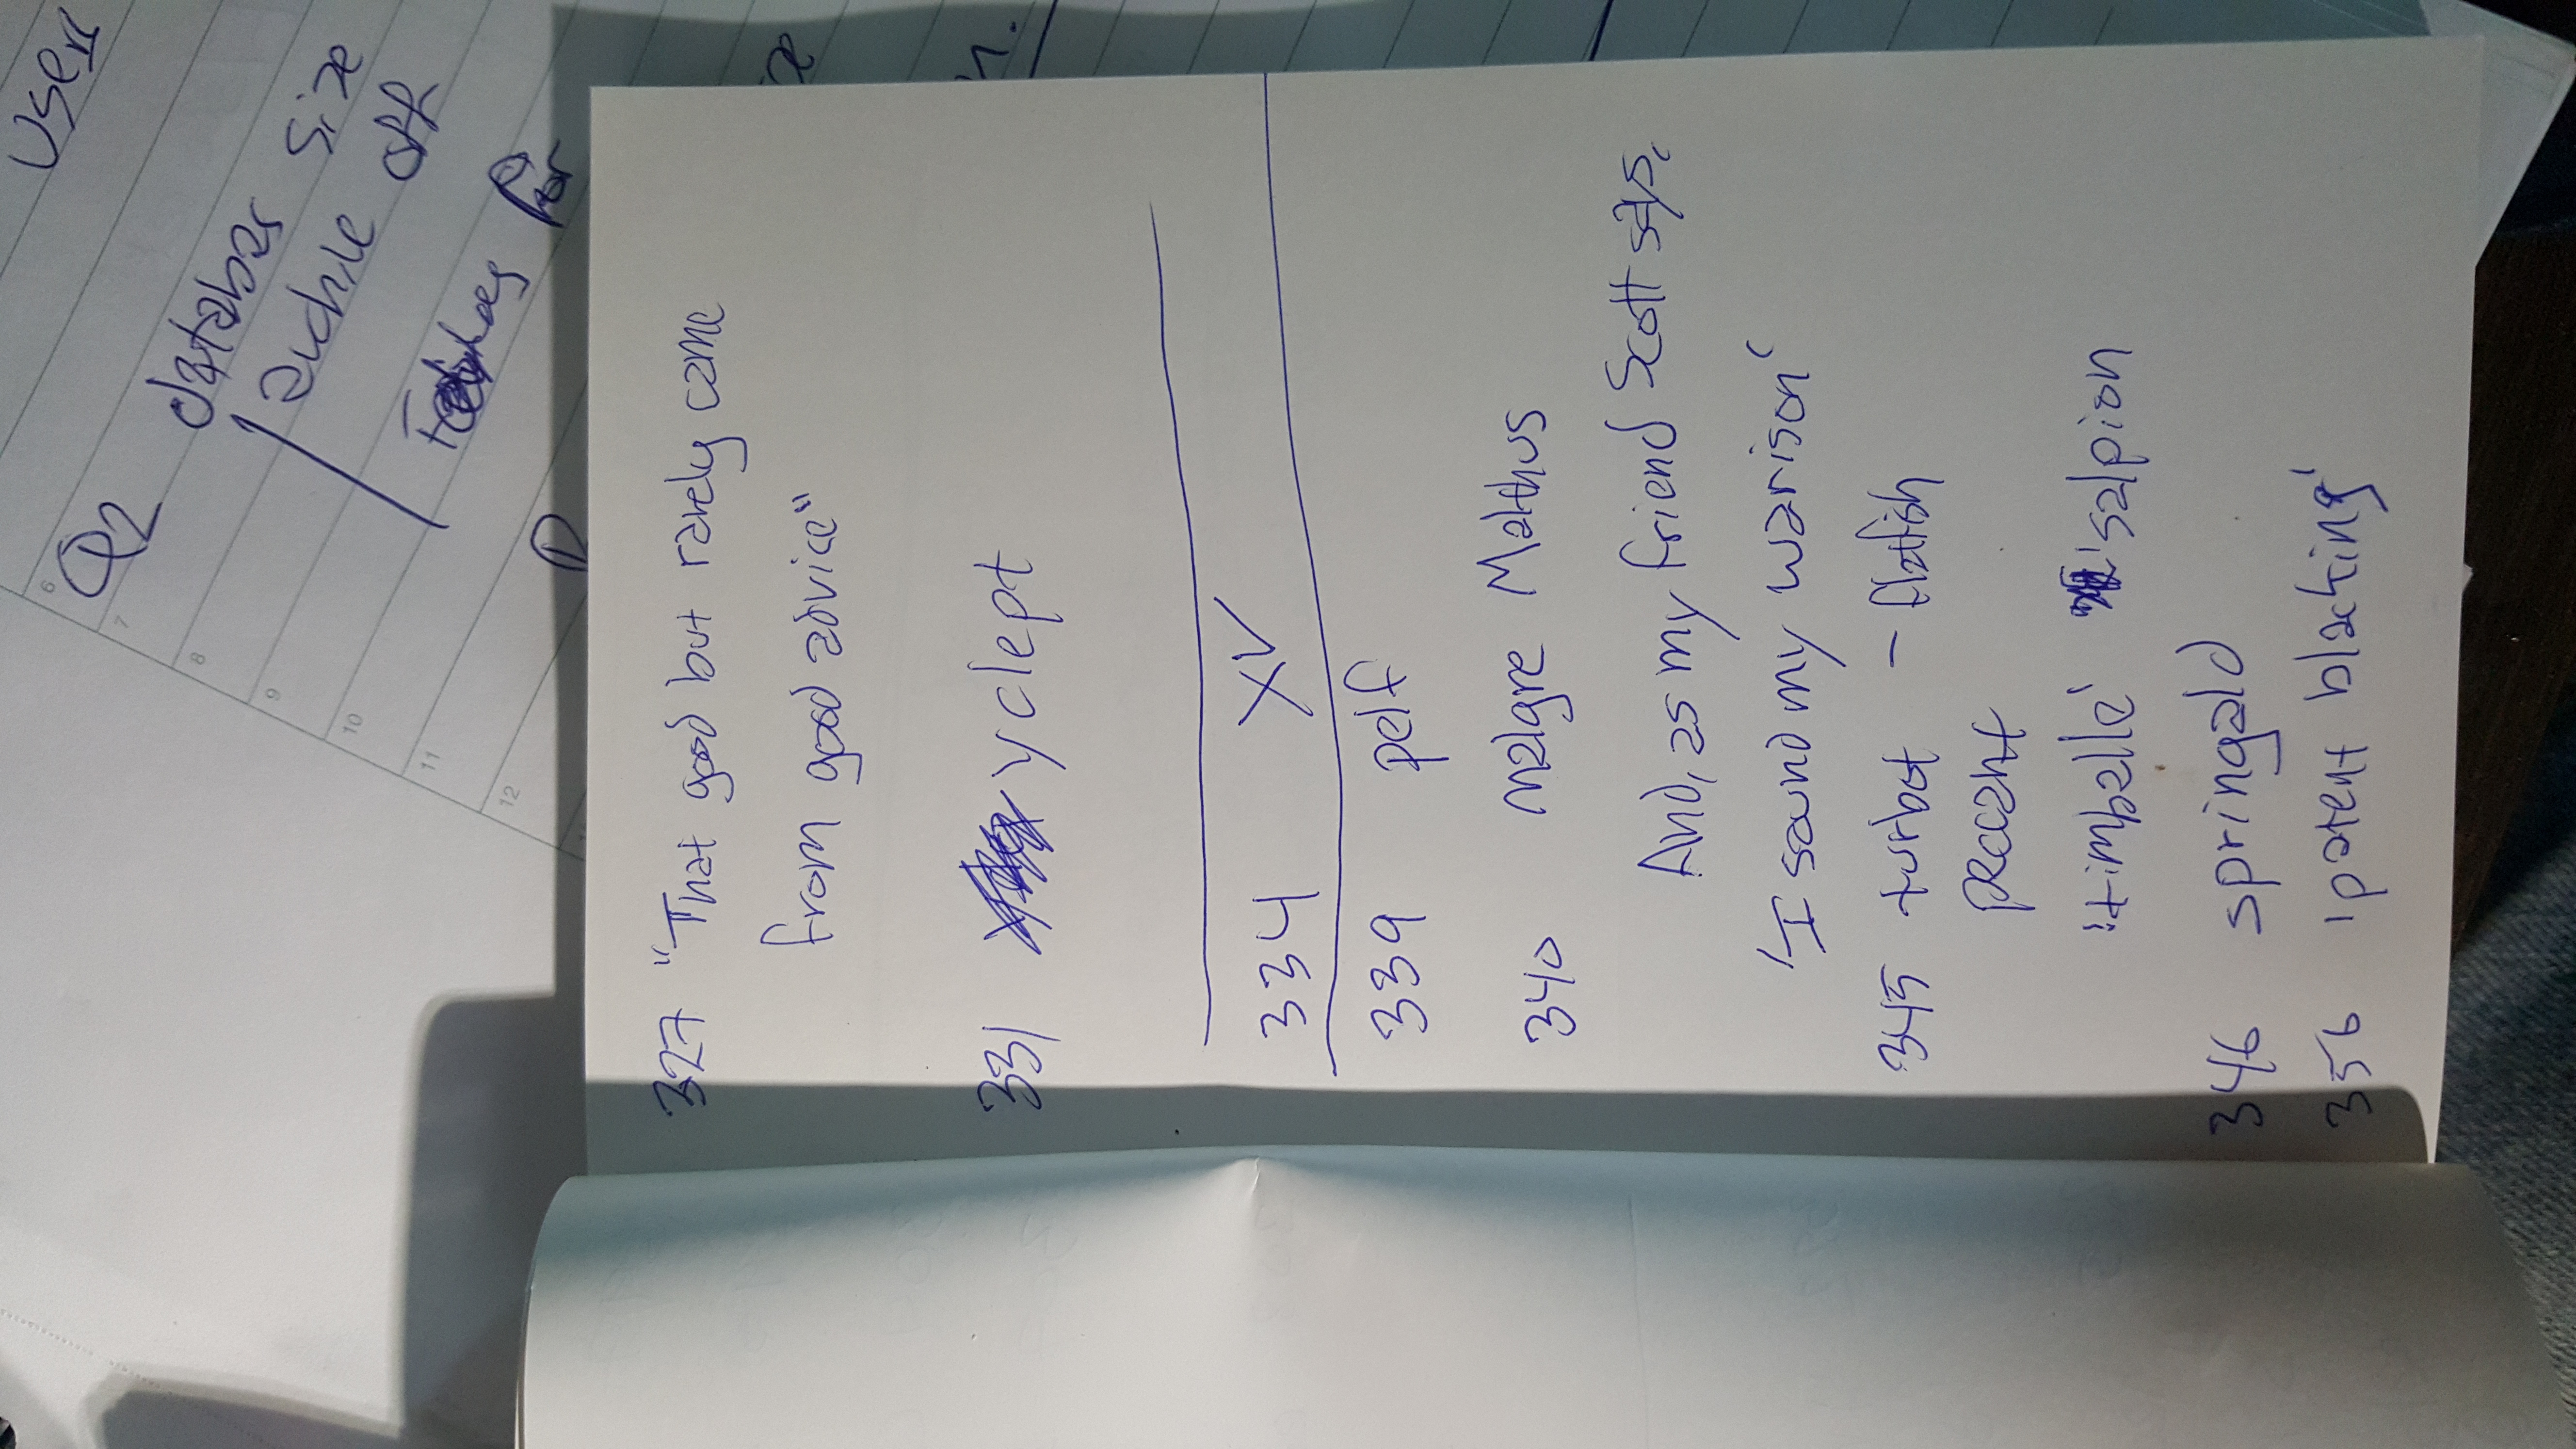 327 "That good but rarely came
from good advice"
331 yclept
334 XV
339 pelf
340 malgre Malthus
And, as my friend Scott says,
'I sound my warison'
345 turbot - flatfish
peccant
'timballe' 'salpicon
346 springald
356 'potent blacking'
User
Q2 databas size
while off
for
6
7
8
9
10
11
12